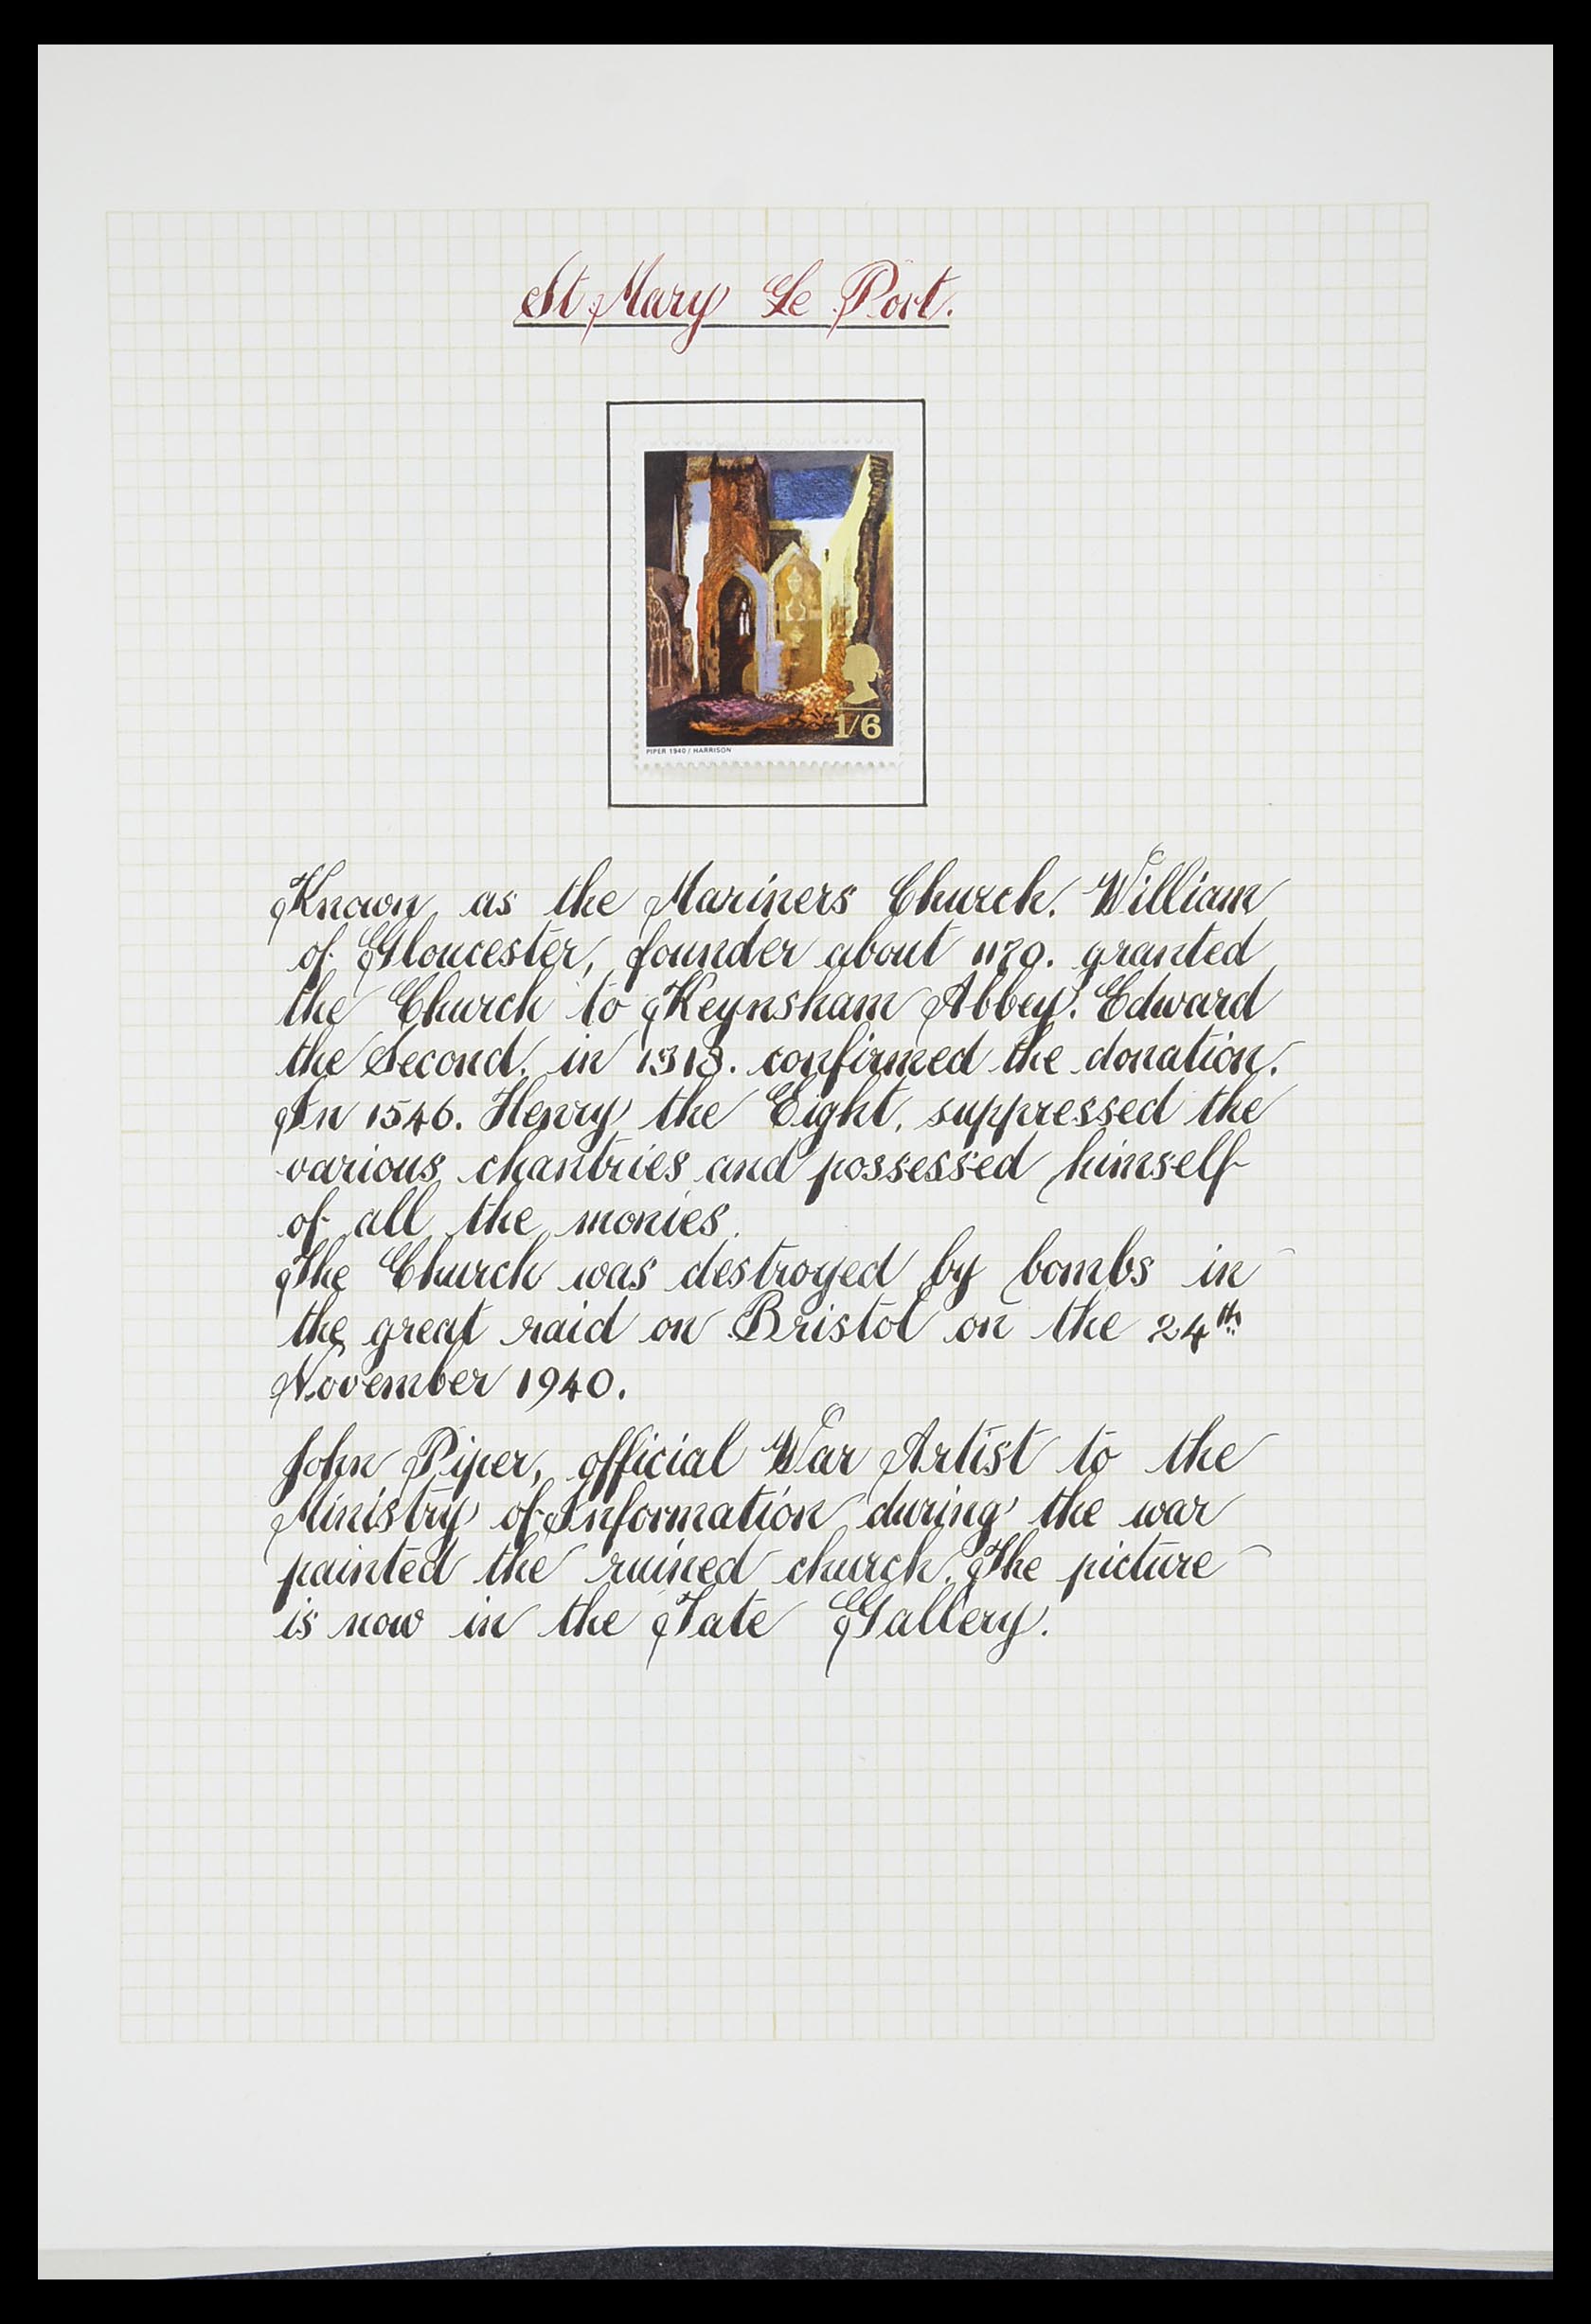 St Mary Le Port.
1/6
PIPER 1940 / HARRISON
Known as the Mariners Church. William
of Gloucester, founder about 1170. granted
the Church to Keynsham Abbey. Edward
the Second. in 1313. confirmed the donation.
In 1546. Henry the Eight, suppressed the
various chantries and possessed himself
of all the monies.
The Church was destroyed by bombs in
the great raid on Bristol on the 24th
November 1940.
John Piper, official War Artist to the
Ministry of Information during the war
painted the ruined church. The picture
is now in the Tate Gallery.